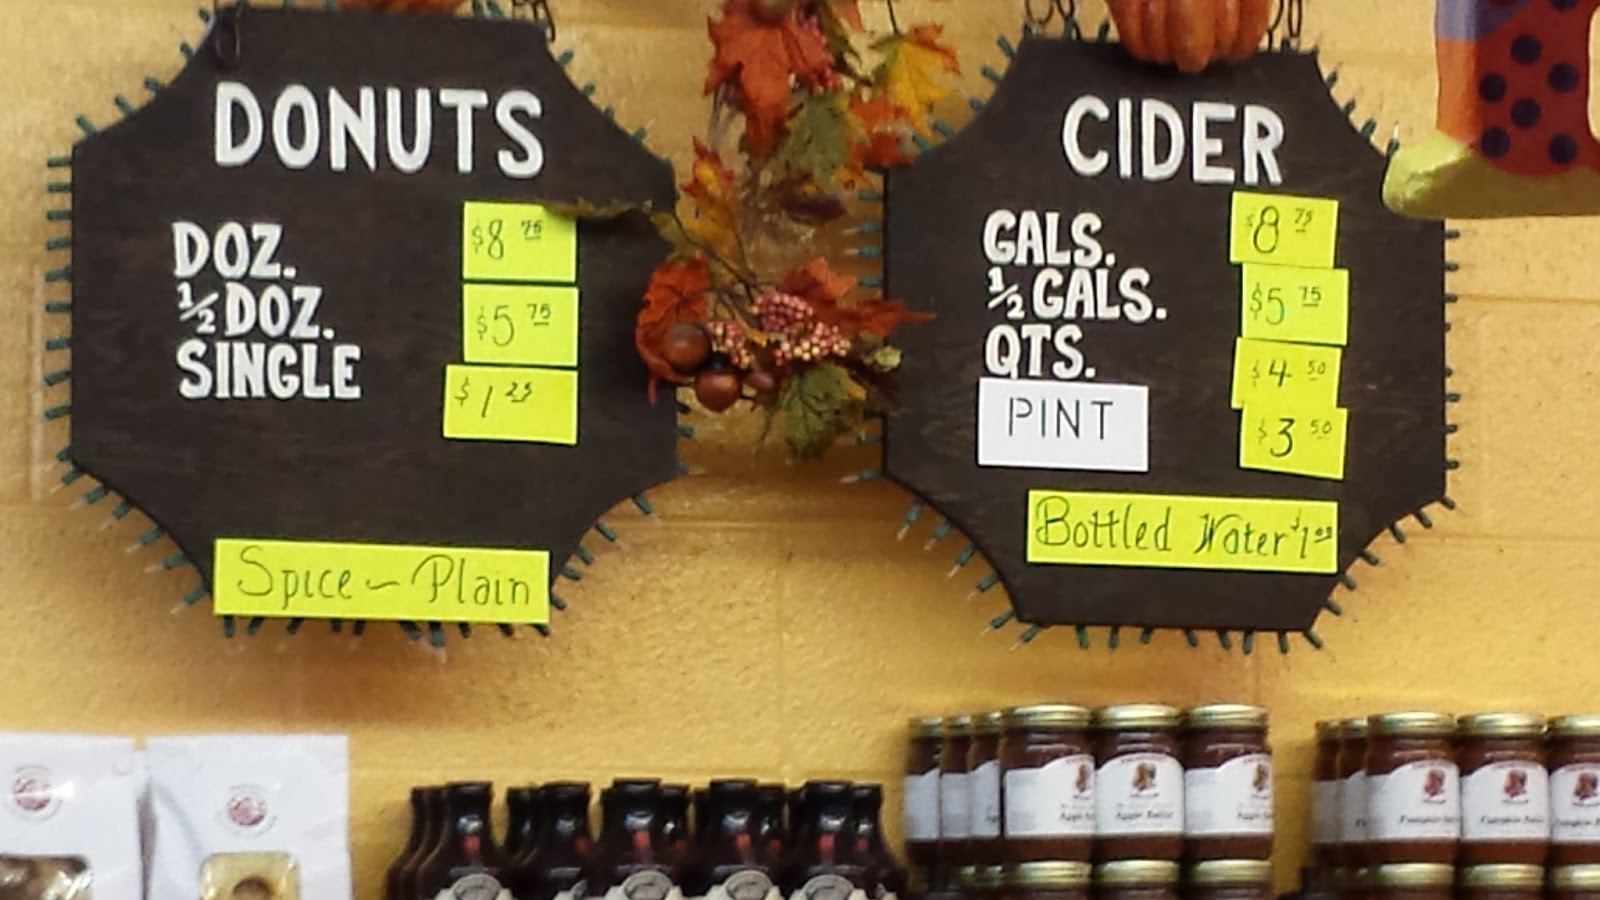 DONUTS
DOZ. $8 75
½ DOZ. $5 75
SINGLE $1 25
Spice ~ Plain
CIDER
GALS. $8 75
½ GALS. $5 75
QTS. $4 50
PINT $3 50
Bottled Water $1 00
Apple Butter